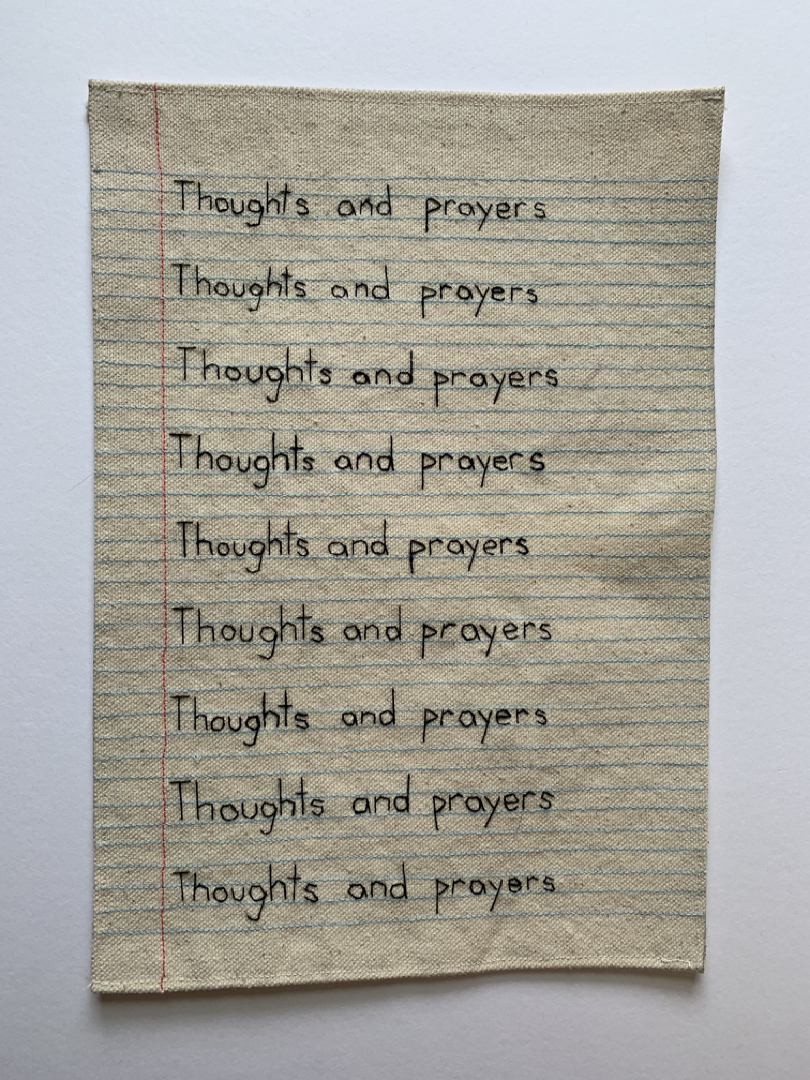 Thoughts and prayers
Thoughts and prayers
Thoughts and prayers
Thoughts and prayers
Thoughts and prayers
Thoughts and prayers
Thoughts and prayers
Thoughts and prayers
Thoughts and prayers